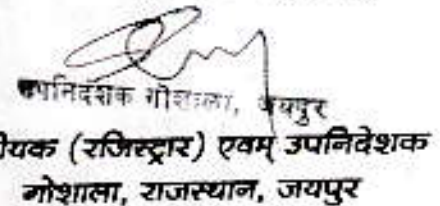 उपनिदेशक गोशाला, जयपुर
(रजिस्ट्रार) एवम् उपनिदेशक
गोशाला, राजस्थान, जयपुर